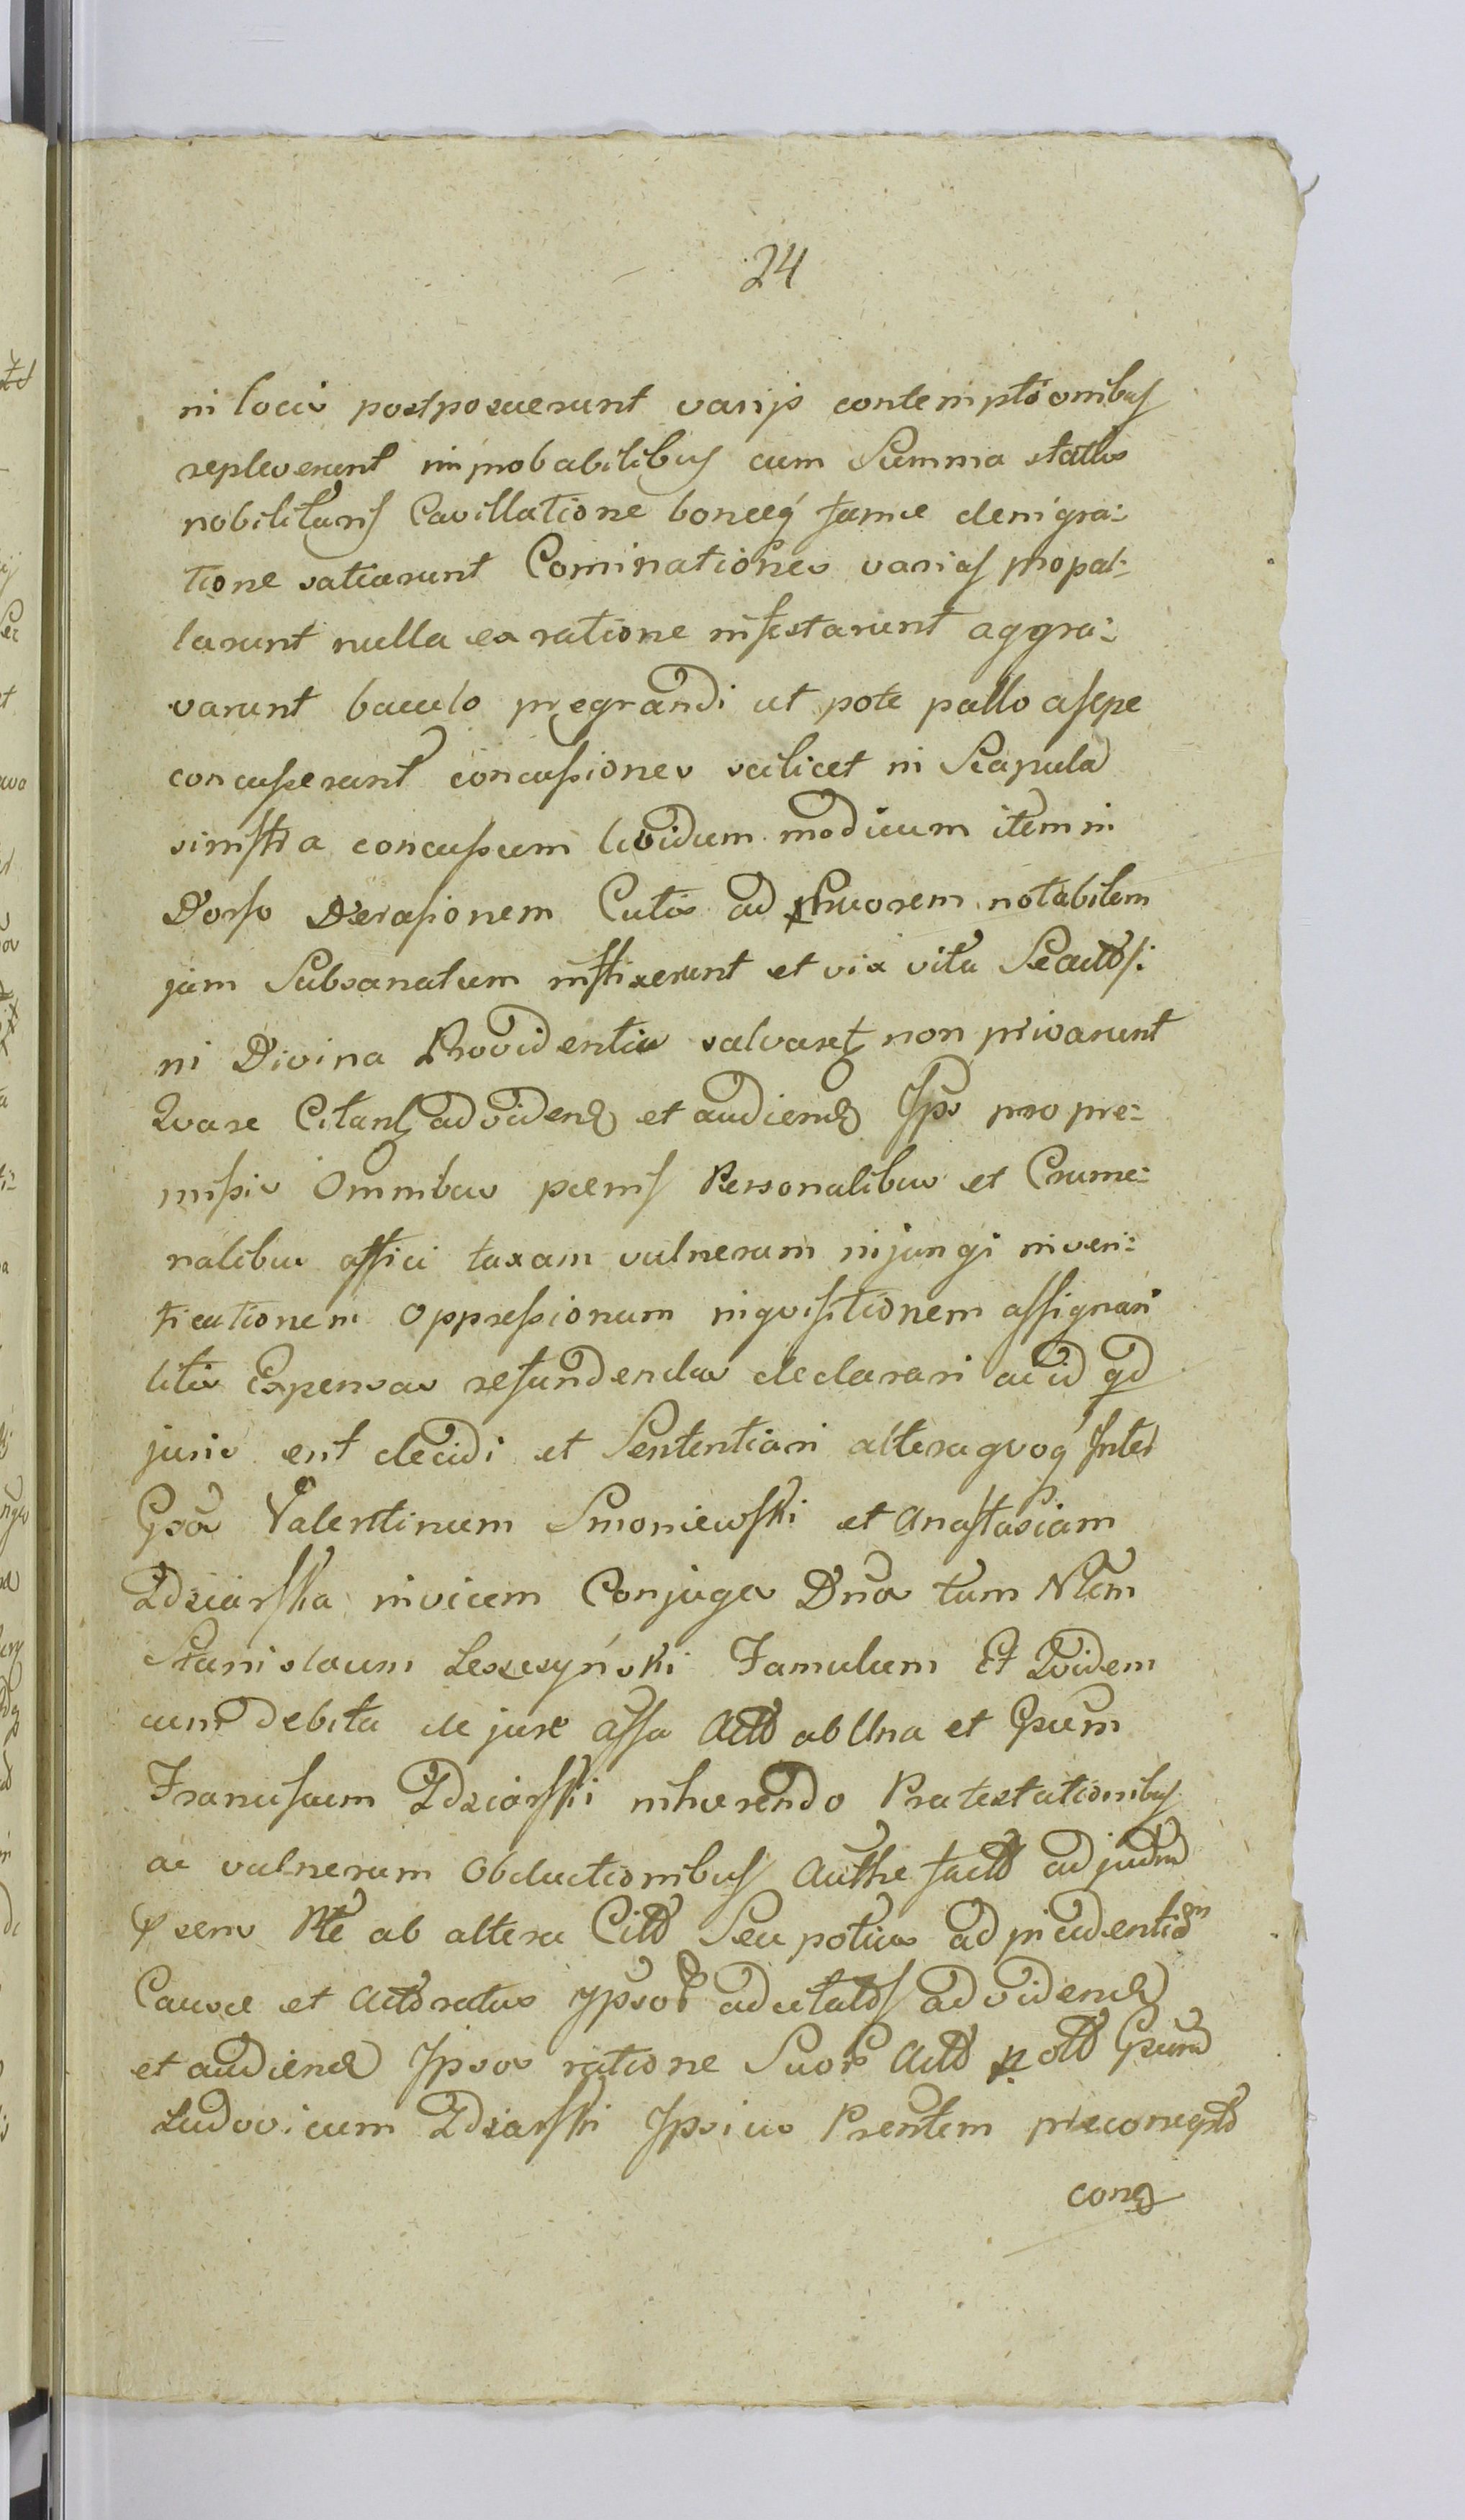 24
in locis postposuerunt varijs contemptionibus
repleverunt improbabilibus cum Summa status
nobilitaris Cavillatione bonæq́ famæ denigra:
tione satiarunt Cominationes varias propal:
larunt nulla ex ratione infestarunt aggra:
varunt baculo prægrandi ut pote pallo asepe
concusserunt concussiones scilicet in Scapula
sinistra concussum lividum modicum item in
Dorso Derasionem Cutis ad notabilem
jam Subsanatum inflixerunt et vix vita
ni Divina Providentia salvaret non privarunt
Quare Citant ad videnđ et audienđ Ipos pro pre:
missis Omnibus pœnis Personalibus et Crume:
nalibus affici taxam vulnerum injungi inveri:
ficationem Oppressionum inqvisitionem assignari
litis Expensas refundendas declarari ac id qd
juris erit decidi et Sententiari altera qvoq́ Inter
Gsos Valentinum Smoniewski et Anastasiam
Zdziarska invicem Conjuges Dnos tum Nlem
Stanislaum Leszczyński Famulum Et Qvidem
cum debita de jure assa Actt ab Una et Gsum
Franciscum Zdziarski inhærendo Protestationibus
ac vulnerum Obductionibus Authe factt ad judm
Psens Pte ab altera Citt Seu potius ad pnciudentiam
Causæ et Acttoratus ypsor adcitatt ad videnđ
et audienđ Ipsos ratione Suor Actt p ott Gsum
Ludovicum Zdziarski Ipsius Prentem